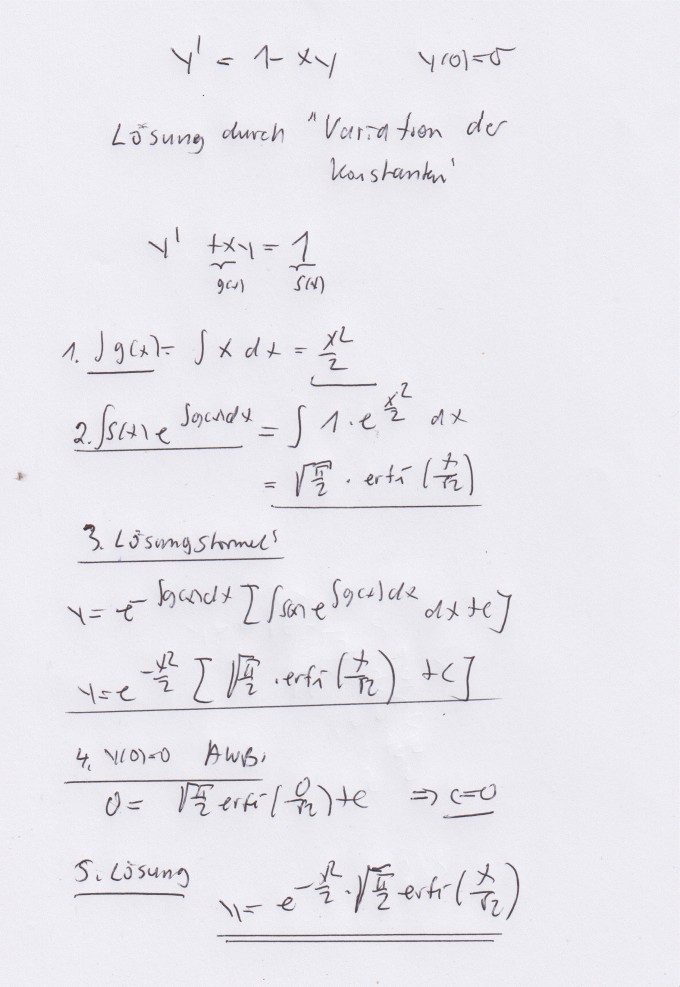 y' = 1 - xy y(0)=0
Lösung durch "Variation der
Konstanten"
y' +xy = 1
g(x) s(x)
1. ∫g(x) = ∫ x dx = x²/2
2. ∫s(x) e^(∫g(x)dx) = ∫ 1·e^(x²/2) dx
= √(π/2) · erfi (x/√2)
3. Lösungsformel:
y = e^(-∫g(x)dx) [∫s(x) e^(∫g(x)dx) dx + c]
y = e^(-x²/2) [√(π/2) · erfi (x/√2) + c]
4. y(0)=0 AWB:
0 = √(π/2) erfi (0/√2) + c ⇒ c=0
5. Lösung
y = e^(-x²/2) · √(π/2) erfi (x/√2)